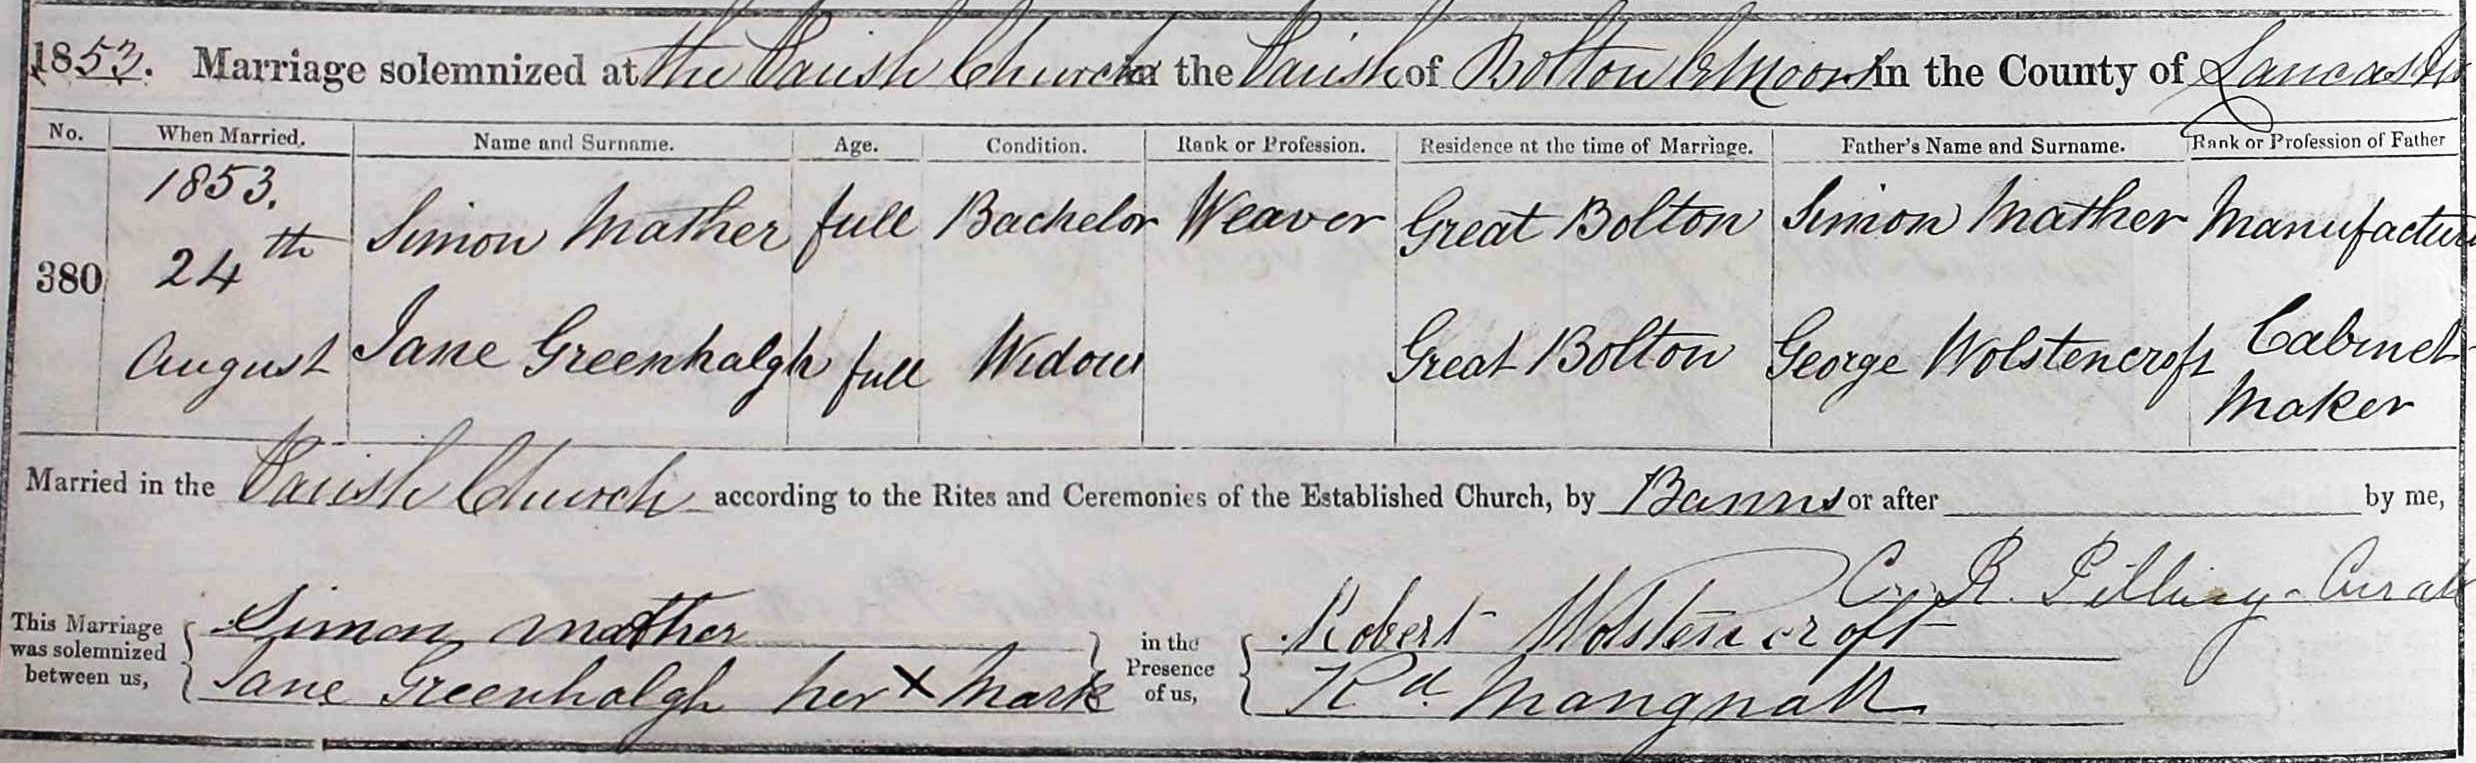 1853. Marriage solemnized at the Parish Church in the Parish of Bolton le Moors in the County of Lancaster
No. When Married. Name and Surname. Age. Condition. Rank or Profession. Residence at the time of Marriage. Father's Name and Surname. Rank or Profession of Father
380 1853. 24th August
Simon Mather full Bachelor Weaver Great Bolton Simon Mather Manufacturer
Jane Greenhalgh full Widow Great Bolton George Wolstencroft Cabinet Maker
Married in the Parish Church according to the Rites and Ceremonies of the Established Church, by Banns or after by me,
R. Pilling - Curate
This Marriage was solemnized between us, Simon Mather Jane Greenhalgh her X Mark in the Presence of us, Robert Wolstencroft Rd. Mangnall